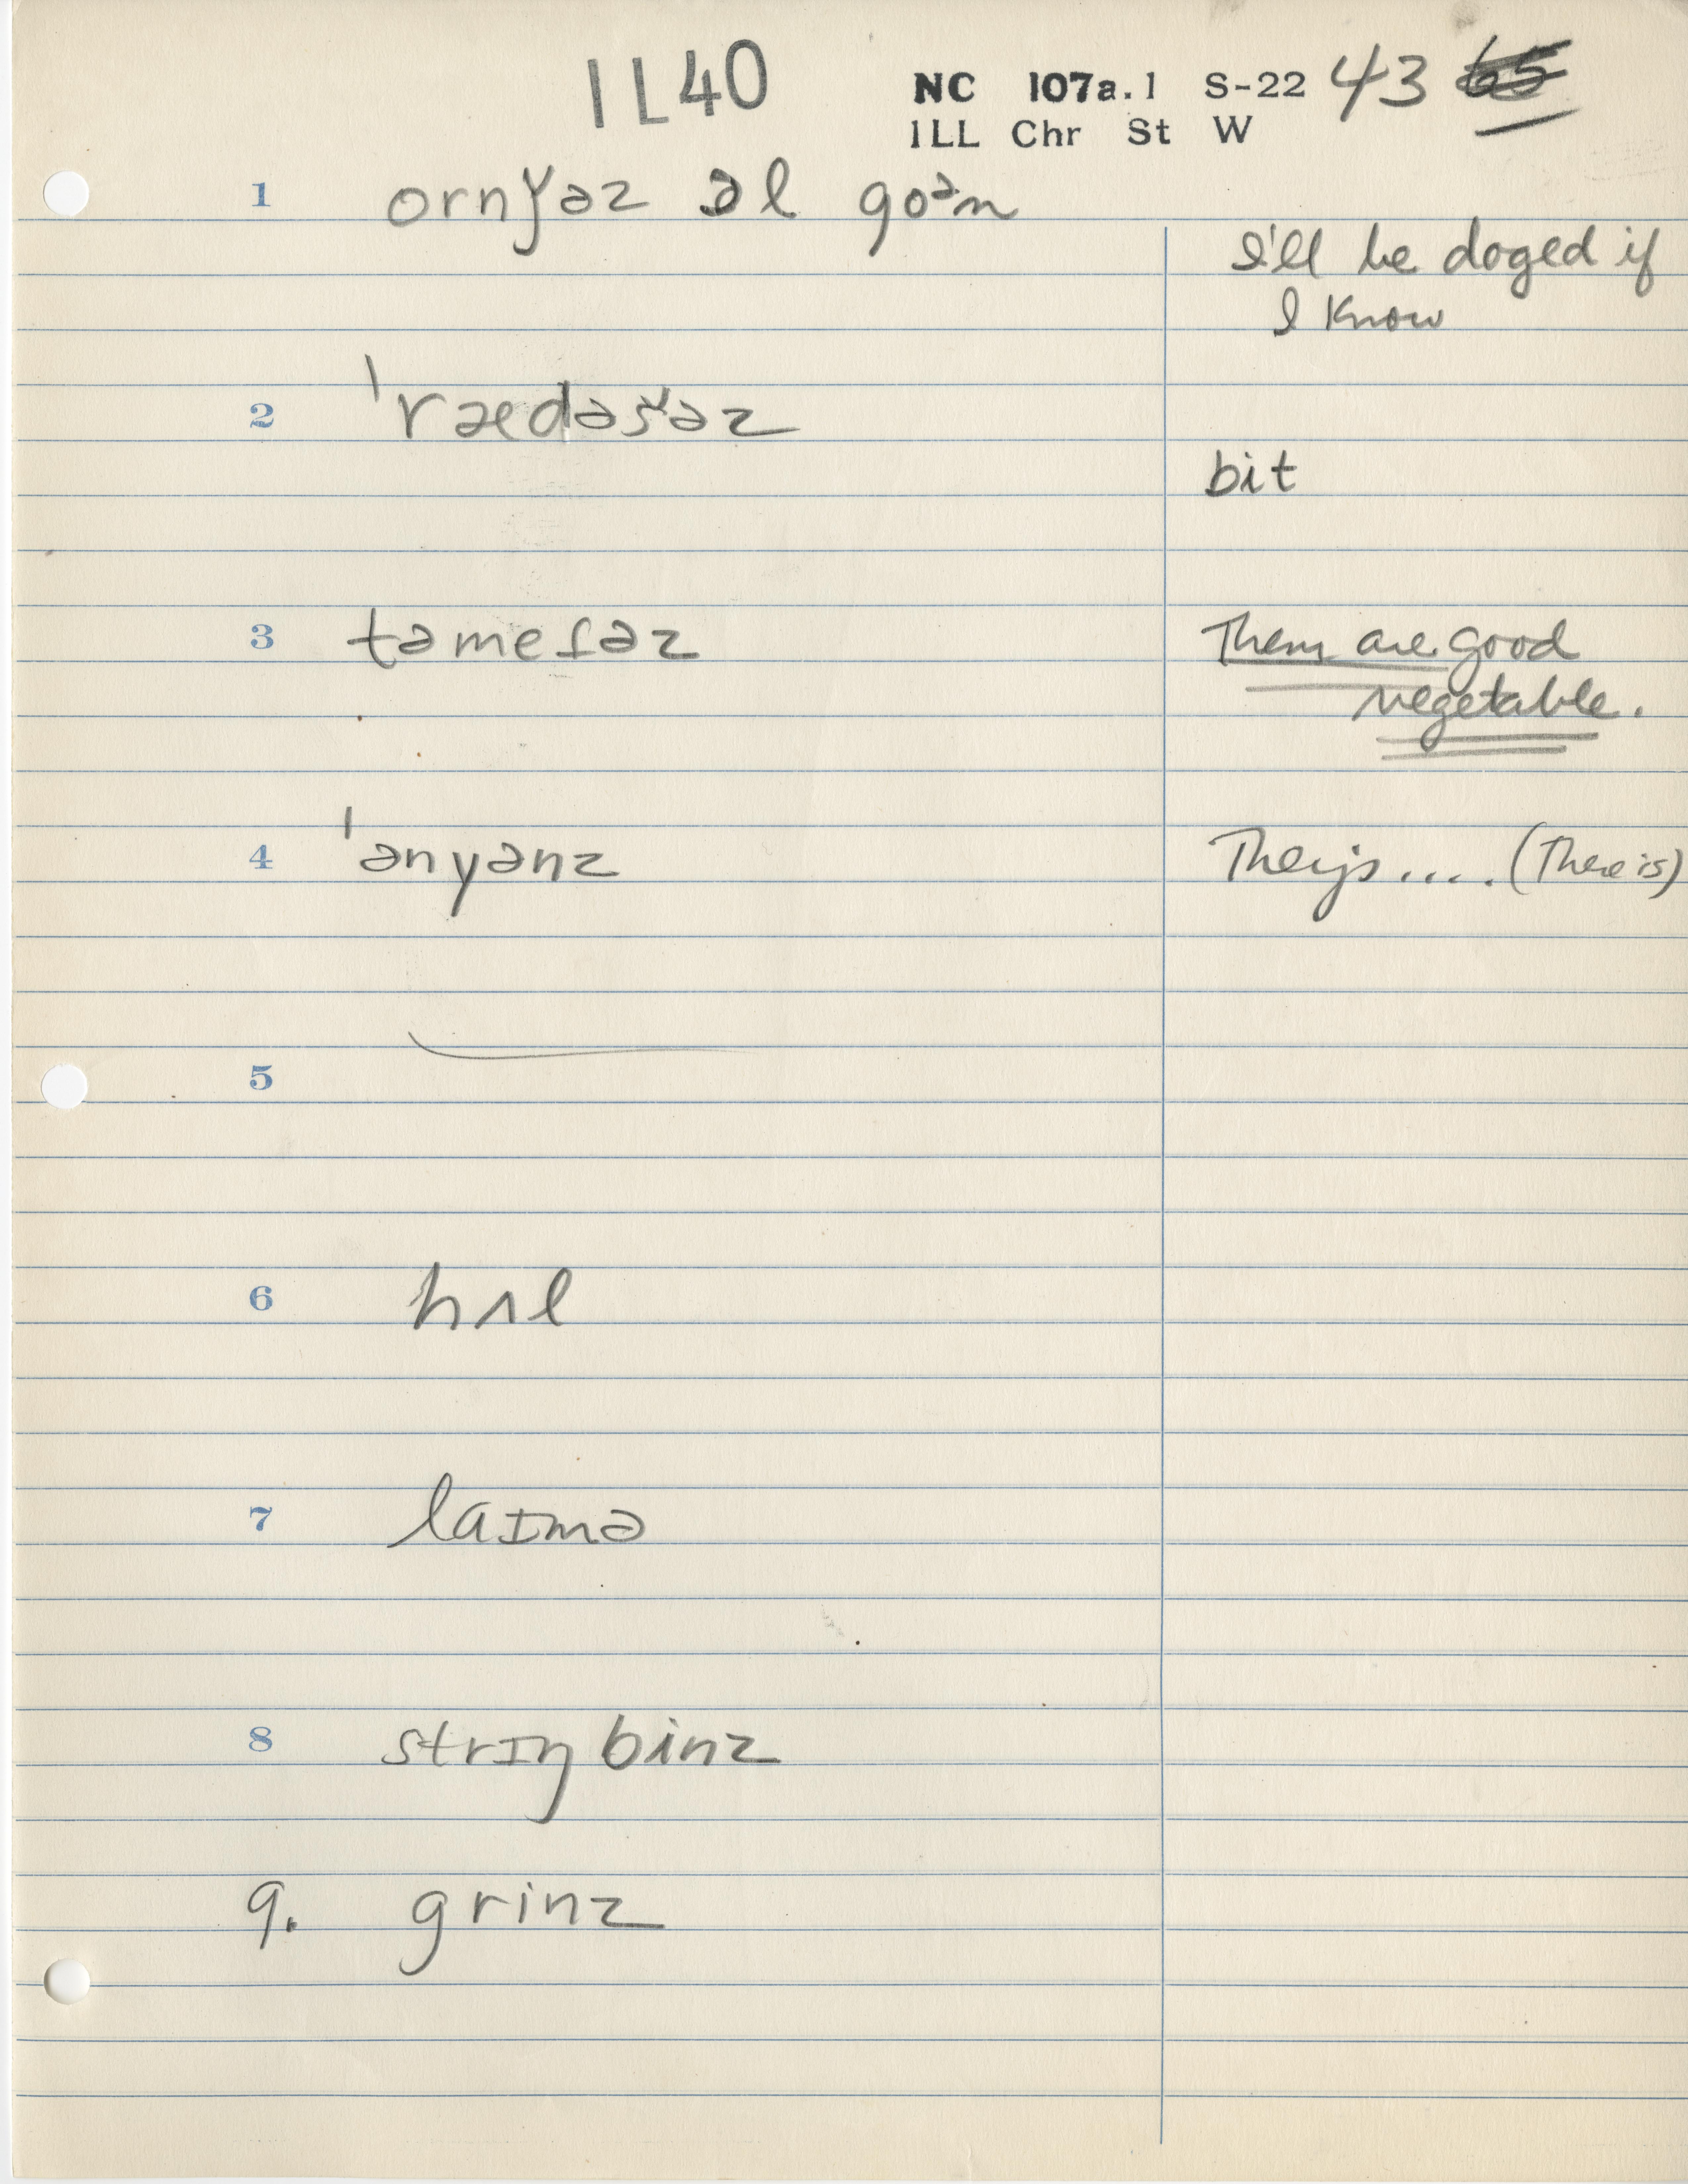 IL40
NC 107a.1 S-22 43
ILL Chr St W
1 ornɣ̌əz əl goᵊn
I'll be doged if
I know
2 ˈrædəšəz
bit
3 təmeɾəz
Them are good
vegetable.
4 ˈənyənz
They's .... (There is)
5
6 hʌl
7 laɪmə
8 strɪŋ binz
9. grinz